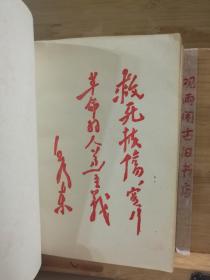 救死扶伤，实行
革命的人道主义
毛泽东
观雨阁古旧书店